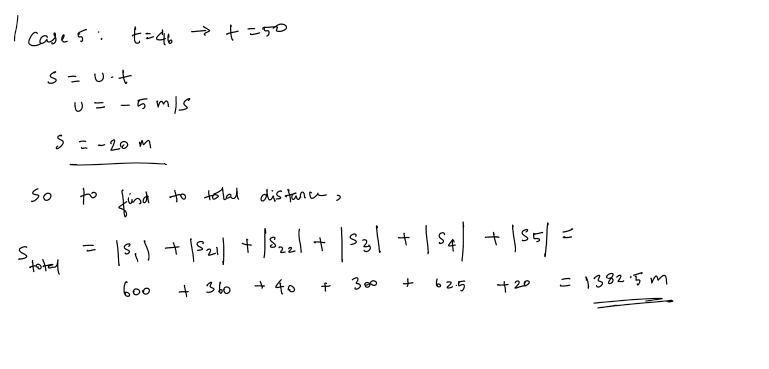 Case 5: t=46 → t=50
S = u·t
u = -5 m/s
S = -20 m
So to find to total distance,
S total = |S1| + |S21| + |S22| + |S3| + |S4| + |S5| =
600 + 360 + 40 + 300 + 62.5 + 20 = 1382.5 m